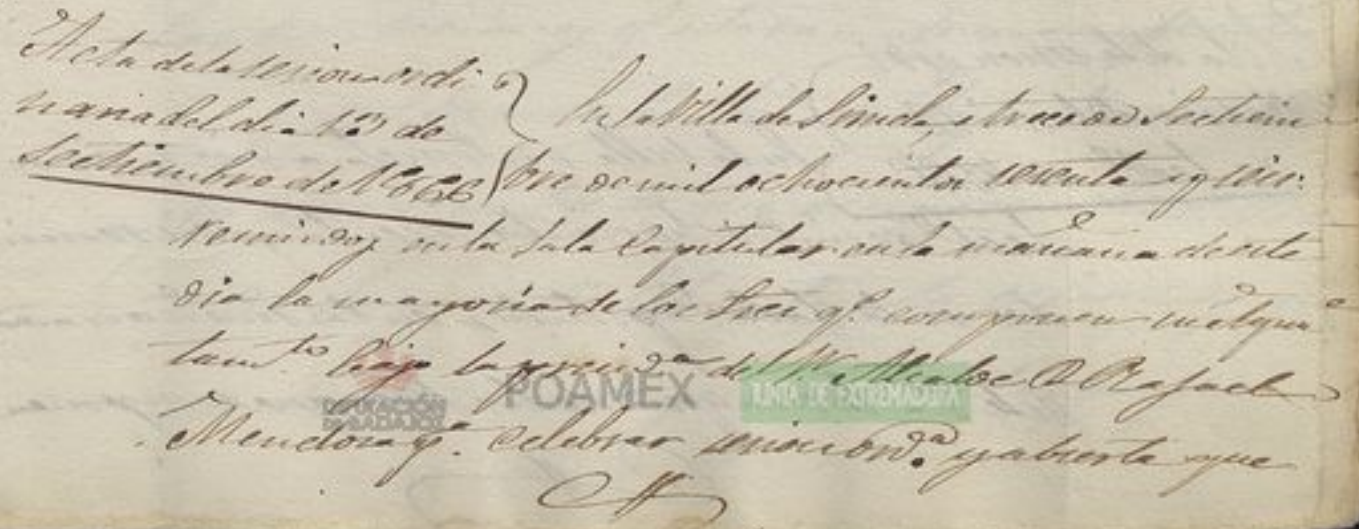 Acta de la sesion ordi
naria del dia 13 de
Setiembre de 1866
En la Villa de a trece de Setiem
bre de mil ochocientos sesenta y seis:
reunidos en la Sala Capitular en la mañana de este
dia la mayoria de los Sres q.e componen
tam.to bajo la presid.a del Sr. Alcalde D. Rafael
Mendoza p.a celebrar sesion ord.a y abierta que
DIPUTACIÓN DE BADAJOZ
POAMEX
JUNTA DE EXTREMADURA